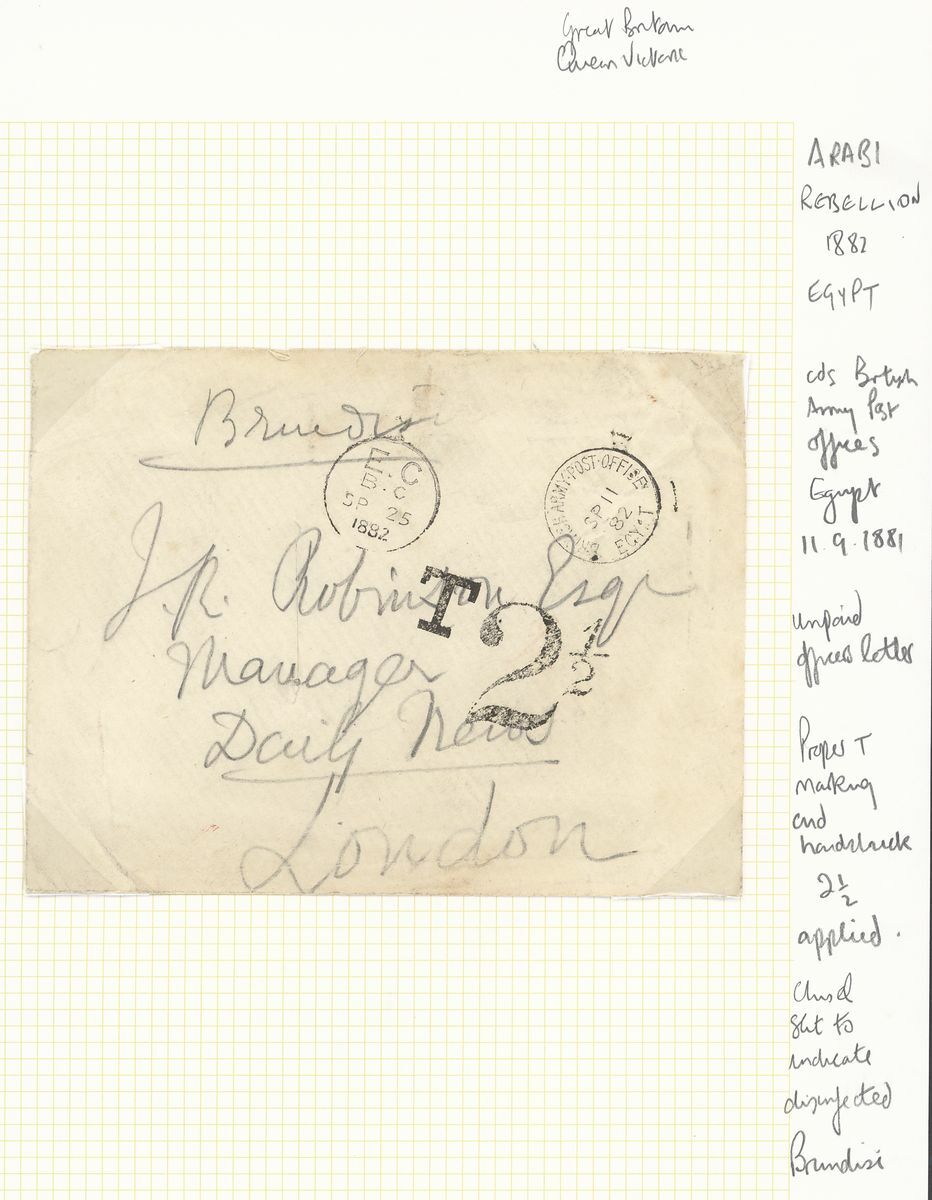 Great Britain
Queen Victoria
ARABI
REBELLION
1882
EGYPT
cds British
Army Post
offices
Egypt
11.9.1881
unpaid
officers letter
Proper T
marking
and
handstruck
2½
applied.
Chisel
slit to
indicate
disinfected
Brindisi
Brindisi
E.C
B.C
SP 25
1882
BRITISH ARMY·POST·OFFICE
SP 11
82
EGYPT
J.R. Robinson Esqr
T 2½
Manager
Daily News
London